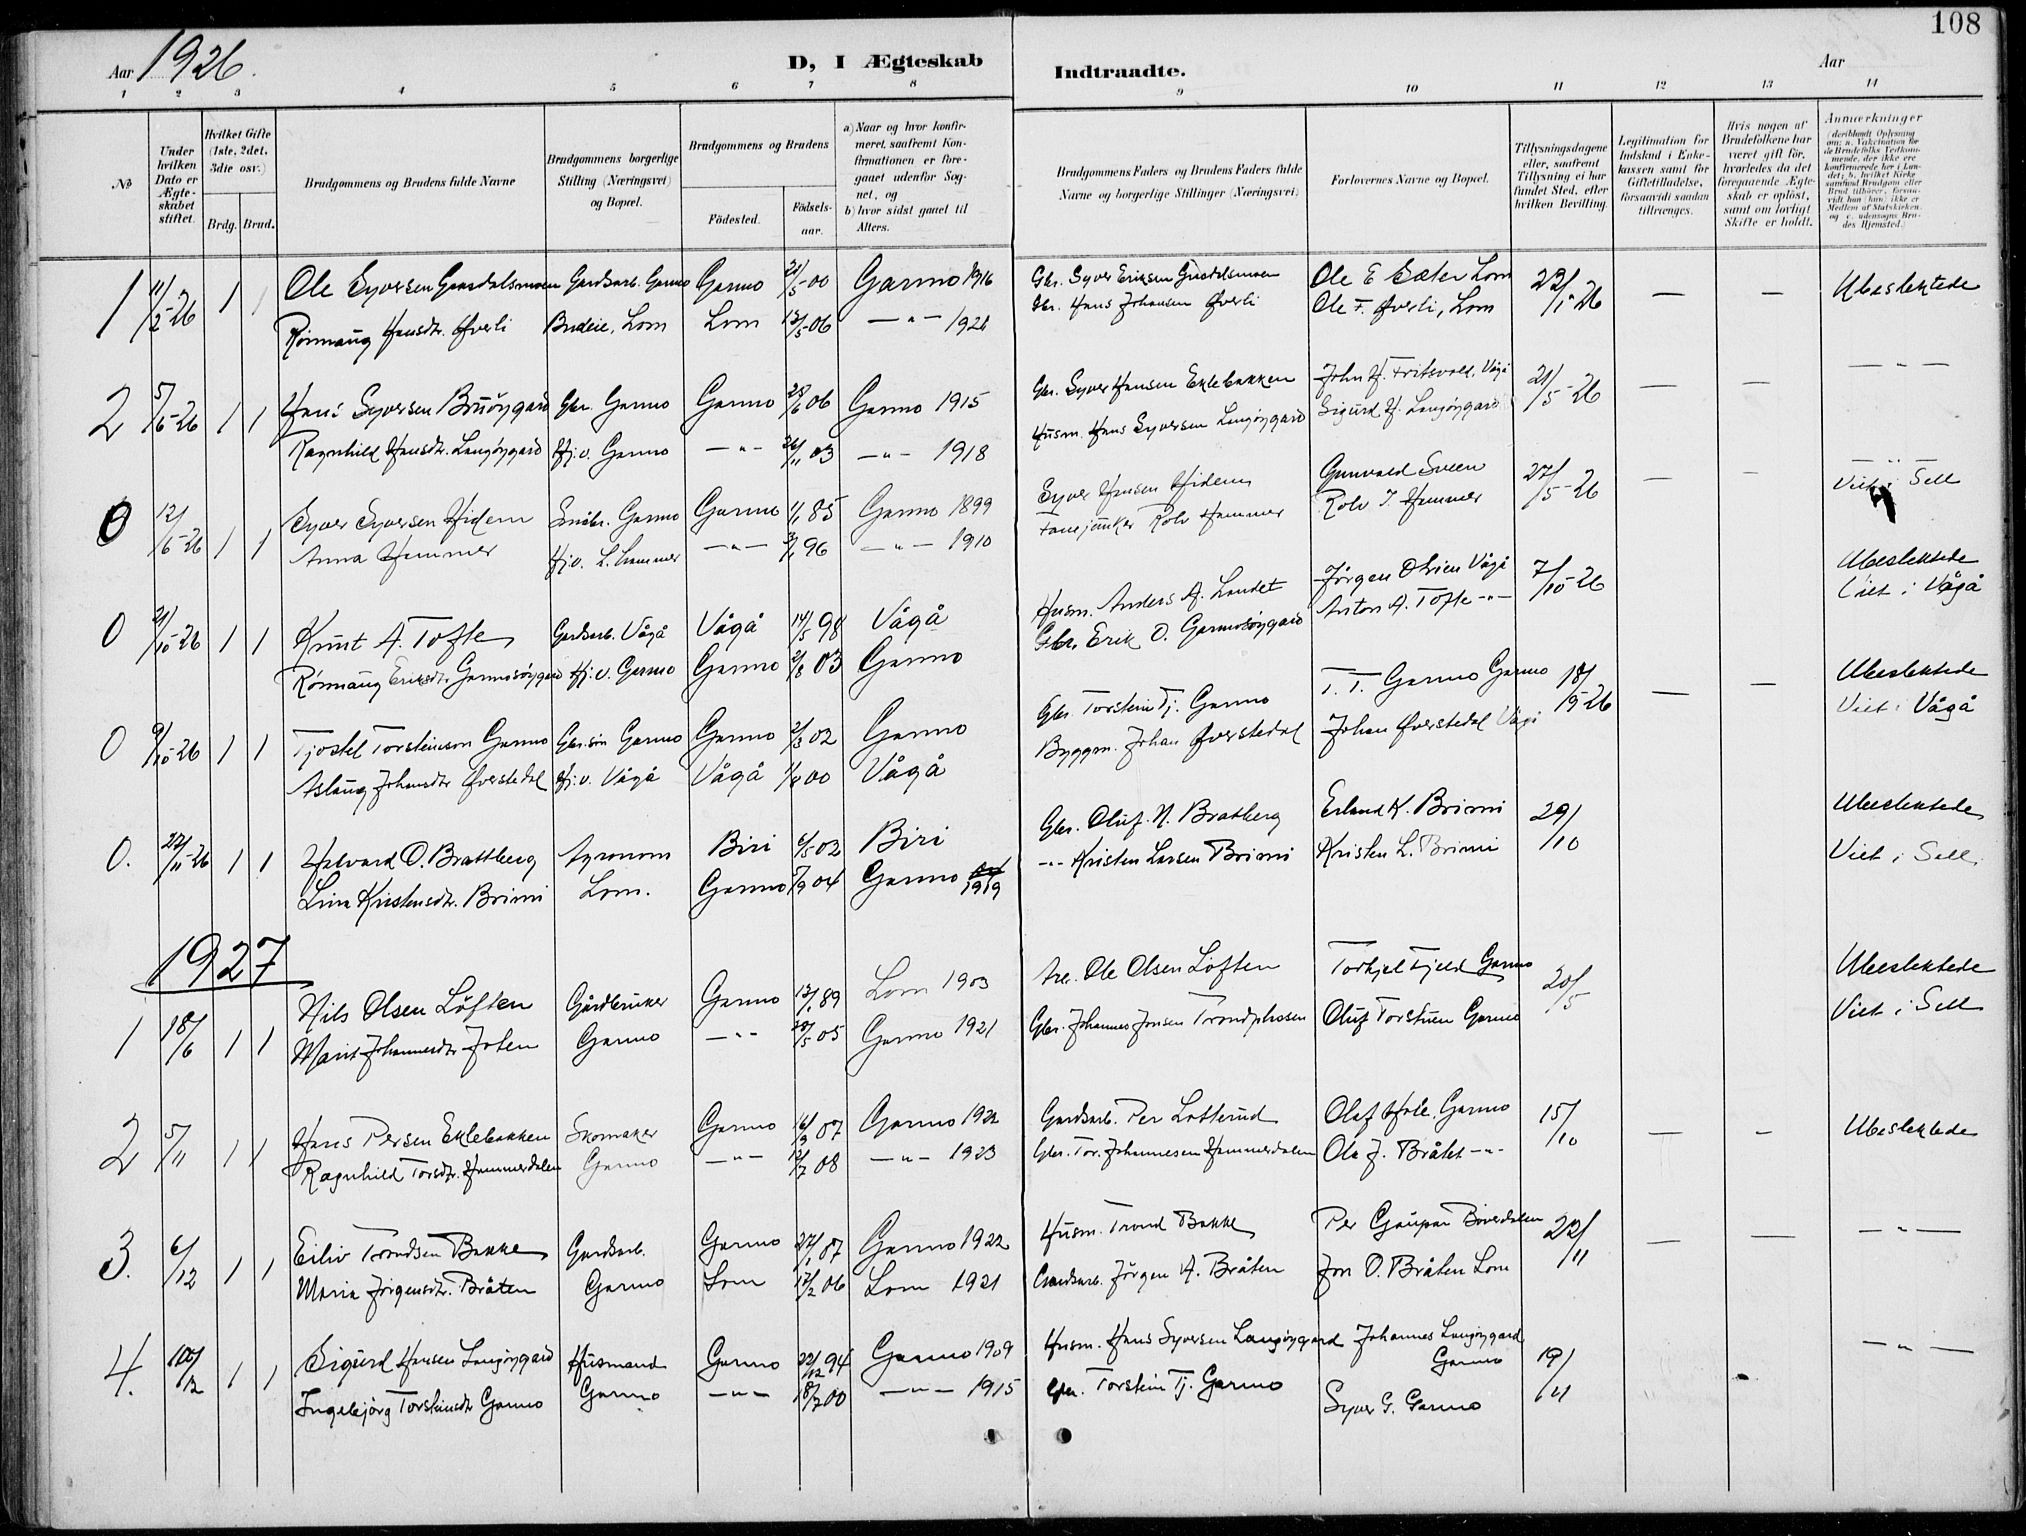 108
Aar 1926.
D, I Ægteskab
Indtraadte.
Aar
1 2 3 4 5 6 7 8 9 10 11 12 13 14
No
Under hvilken Dato er Ægteskabet stiftet.
Hvilket Gifte (1ste, 2det, 3die osv.)
Brdg. Brud.
Brudgommens og Brudens fulde Navne
Brudgommens borgerlige Stilling (Næringsvei) og Bopæl.
Brudgommens og Brudens
Födested.
Födselsaar.
a) Naar og hvor konfirmeret, saafremt Konfirmationen er foregaaet udenfor Sognet, og
b) hvor sidst gaaet til Alters.
Brudgommens Faders og Brudens Faders fulde Navne og borgerlige Stillinger (Næringsvei)
Forlovernes Navne og Bopæl.
Tillysningsdagene eller, saafremt Tillysning ei har fundet Sted, efter hvilken Bevilling.
Legitimation for Indskud i Enkekassen samt for Giftetilladelse, forsaavidt saadan tiltrænges.
Hvis nogen af Brudefolkene har været gift för, hvorledes da det foregaaende Ægteskab er oplöst, samt om lovligt Skifte er holdt.
Anmærkninger
1 11/2-26 1 1 Ole Syversen Gardsarb. Garmo Garmo 5-00 Garmo 1916 Gbr. Syver Eriksen Ole E Sæter Lom 22/1-26 — — Ubeslektede
Rönnaug Hansdtr. Øverli Budeie, Lom Lom 13/5-06 —"— 1921 Gbr. Hans Johansen Øverli Ole F. Øverli, Lom
2 5/6-26 1 1 Hans Syversen Bruöygard Gbr. Garmo Garmo 28/6 06 Garmo 1915 Gbr. Syver Hansen Eklebakken John H. Fritsvold, Vågå 21/5-26 — — —"—
Ragnhild Hansdtr. Langöygard Hj.v. Garmo —"— 26/11 03 —"— 1918 Husm. Hans Syversen Langöygard Sigurd H. Langöygard
0 12/6-26 1 1 Syver Syversen Hidem Garmo Garmo 1/1 85 Garmo 1899 Syver Hansen Hidem Gunvald Sveen 27/5-26 — — —"—
Anna Hammer Hj.v. L.hammer —"— 3/1 96 —"— 1910 Fanejunker Rolv Hammer Rolv J. Hammer Viet i Sell
0 21/10-26 1 1 Knut A. Tofte Gardsarb. Vågå Vågå 14/5 98 Vågå Husm. Anders A. Landet Jörgen Olsien Vågå 7/10-26 Ubeslektede
Rönnaug Eriksdtr. Garmosöygard Hj.v. Garmo Garmo 2/8 03 Garmo Gbr. Erik O. Garmosöygard Anton A. Tofte —"— Viet i Vågå
0 9/10-26 1 1 Tjostel Torsteinson Garmo Gbr.sön Garmo Garmo 2/3 02 Garmo Gbr. Torstein Tj. Garmo T. T. Garmo Garmo 18/9-26 — — Ubeslektede
Aslaug Johansdtr Øverstedal Hj.v. Vågå Vågå 1/8 00 Vågå Byggm. Johan Øverstedal Johan Øverstedal Vågå Viet i Vågå
0. 22/11-26 1 1 Halvard O. Brattberg Agronom Biri 6/5 02 Biri Gbr. Oluf. N. Bratberg Erland K. Brimi 29/10 Ubeslektede
Lina Kristensdtr. Brimi Lom. Garmo 5/9 04 Garmo 1919 —"— Kristen Larsen Brimi Kristen L. Brimi Viet i Sell.
1927
1 18/6 1 1 Nils Olsen Löften Gårdbruker Garmo 13/1 89 Lom 1903 Arb. Ole Olsen Löften Torkjel Fjeld Garmo 20/5 Ubeslektede
Marit Johannesdtr Joten Garmo —"— 20/5 05 Garmo 1921 Gbr. Johannes Jonsen Oluf Torstuen Garmo Viet i Sell
2 5/11 1 1 Hans Persen Eklebakken Skomaker Garmo 14/9 07 Garmo 1922 Gardsarb. Per Lotterud Olaf Hole, Garmo 15/10 — — Ubeslektede
Ragnhild Torsdtr. Hammerdalen Garmo —"— 12/7 08 —"— 1923 Gbr. Tor Johannesen Hammerdalen Ola J. Bråtet —"—
3. 6/12 1 1 Eiliv Trondsen Bakke Gardsarb. Garmo 27/1 07 Garmo 1922 Husm. Trond Bakke Per Gaupar Böverdalen 22/11 — — —"—
Maria Jörgensdtr. Bråten Garmo Lom 17/2 06 Lom 1921 Gardsarb. Jörgen A. Bråten Jon O. Bråten Lom
4. 10/12 1 1 Sigurd Hansen Langöygard Husmand Garmo 22/12 94 Garmo 1909 Husm. Hans Syversen Langöygard Johannes Langöygard Garmo 19/11 —"—
Ingebjörg Torsteinsdtr Garmo Garmo —"— 18/7 00 —"— 1915 Gbr. Torstein Tj. Garmo Syver G. Garmo